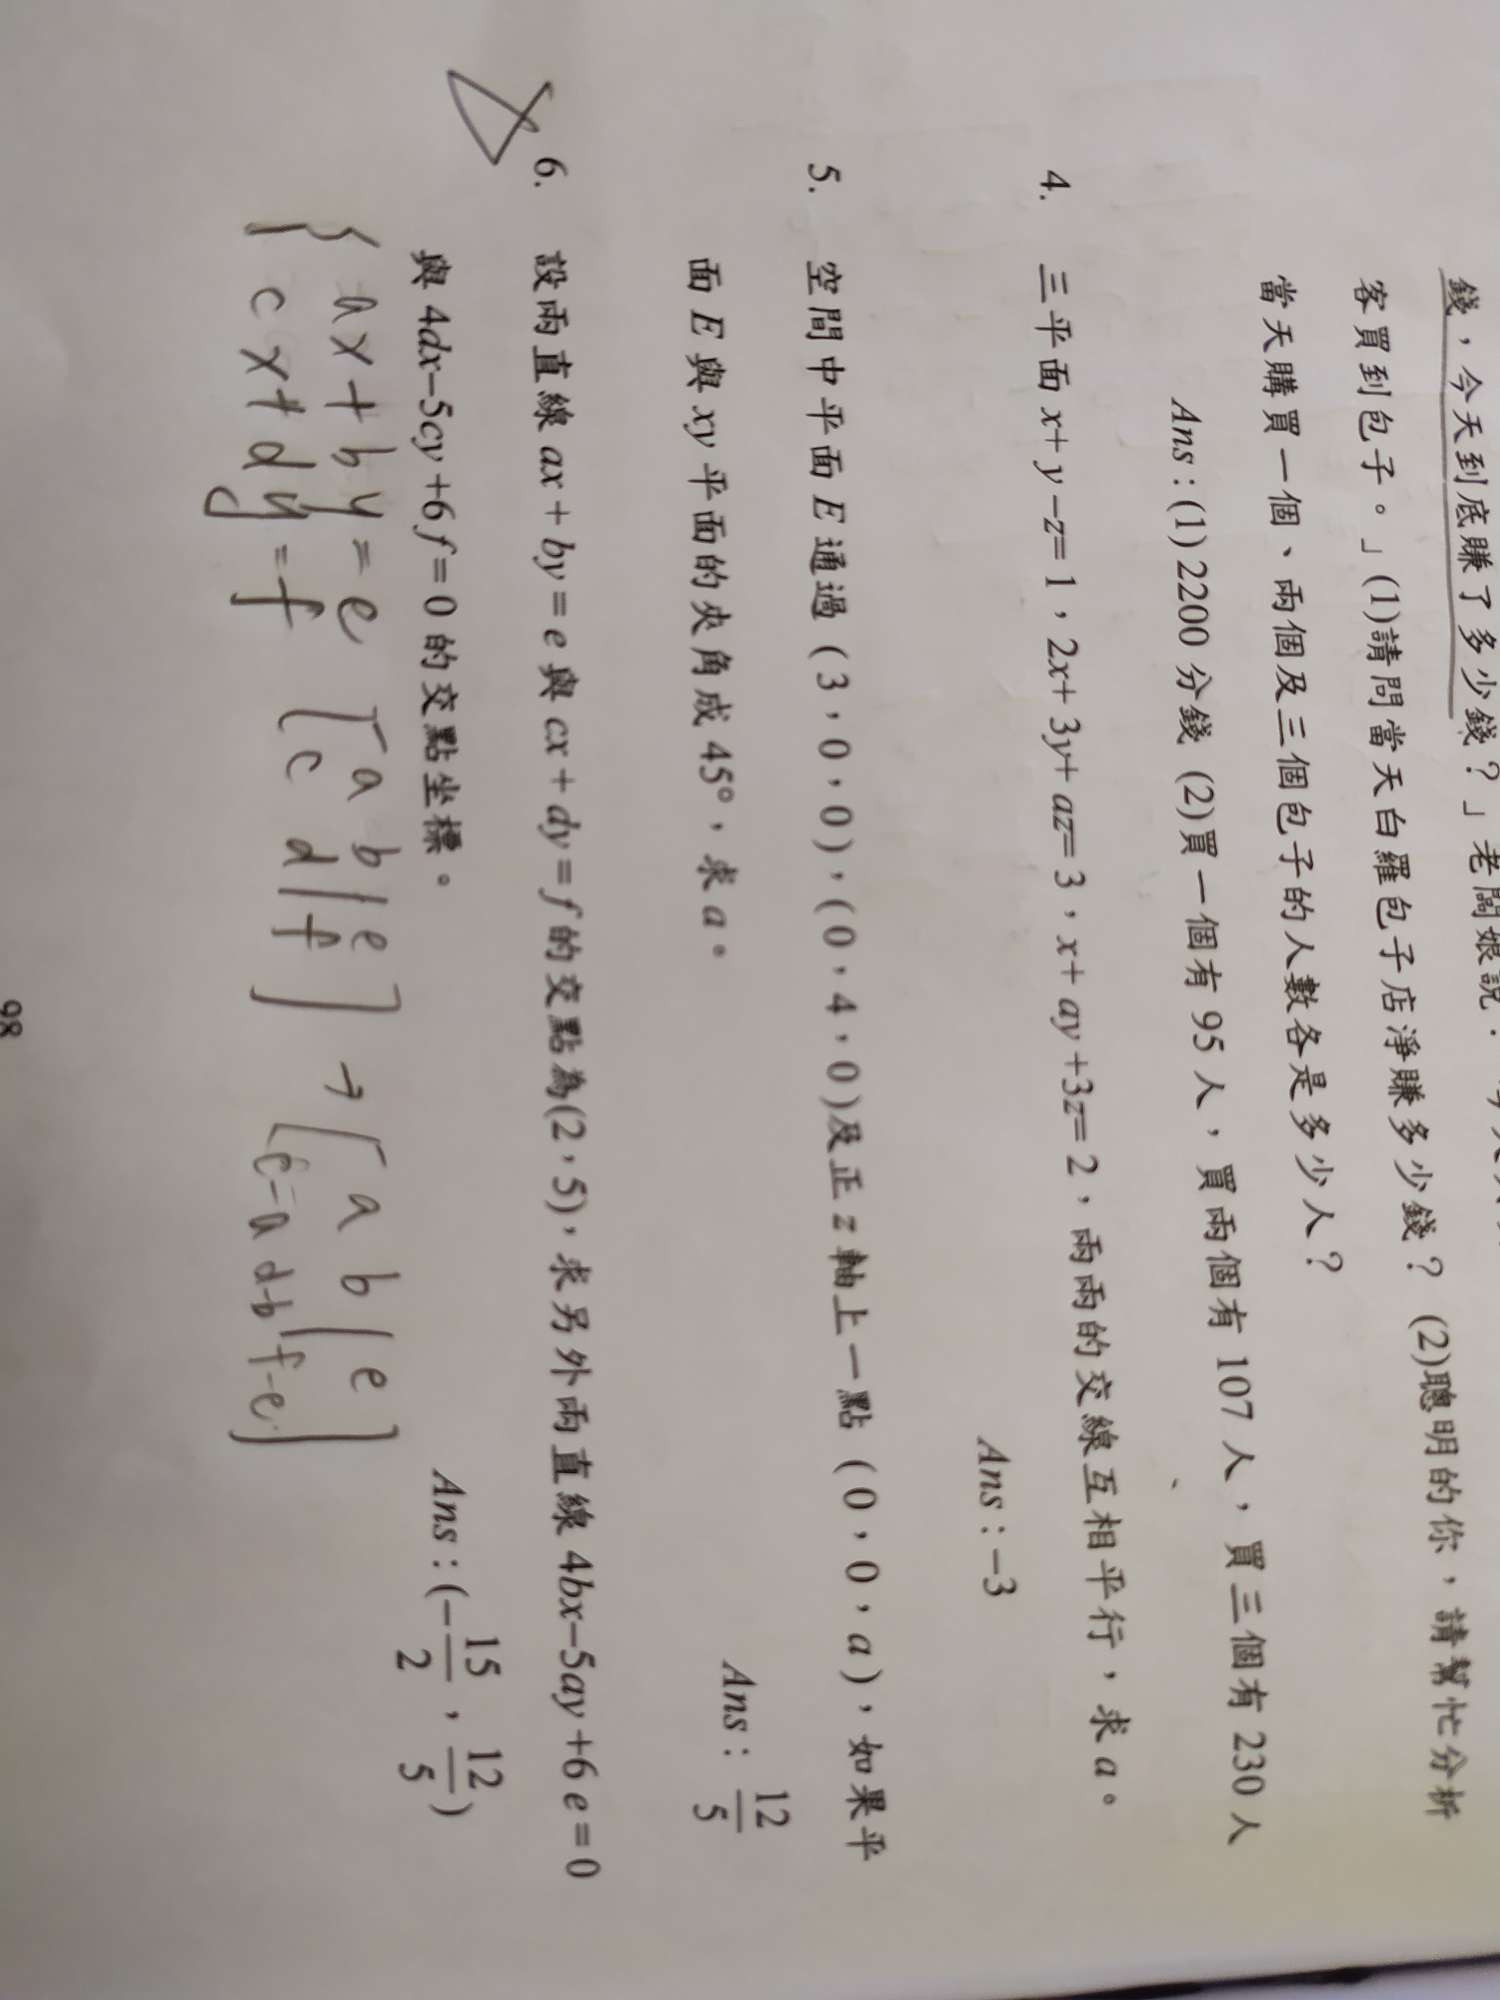 錢，今天到底賺了多少錢？」老闆娘說：
客買到包子。」(1)請問當天白羅包子店淨賺多少錢？ (2)聰明的你，請幫忙分析
當天購買一個、兩個及三個包子的人數各是多少人？
Ans : (1) 2200 分錢 (2)買一個有 95 人，買兩個有 107 人，買三個有 230 人
4. 三平面 x+ y −z= 1，2x+ 3y+ az= 3，x+ ay +3z= 2，兩兩的交線互相平行，求 a。
Ans : −3
5. 空間中平面 E 通過 (3，0，0)，(0，4，0)及正 z 軸上一點 (0，0，a)，如果平
面 E 與 xy 平面的夾角成 45°，求 a。
Ans : 12/5
6. 設兩直線 ax + by = e 與 cx + dy = f 的交點為(2，5)，求另外兩直線 4bx−5ay +6 e = 0
與 4dx−5cy +6 f = 0 的交點坐標。
Ans : (−15/2 , 12/5)
{ ax + by = e [ a b | e ] → [ a b | e ]
cx + dy = f [ c d | f ] [ c-a d-b | f-e ]
98